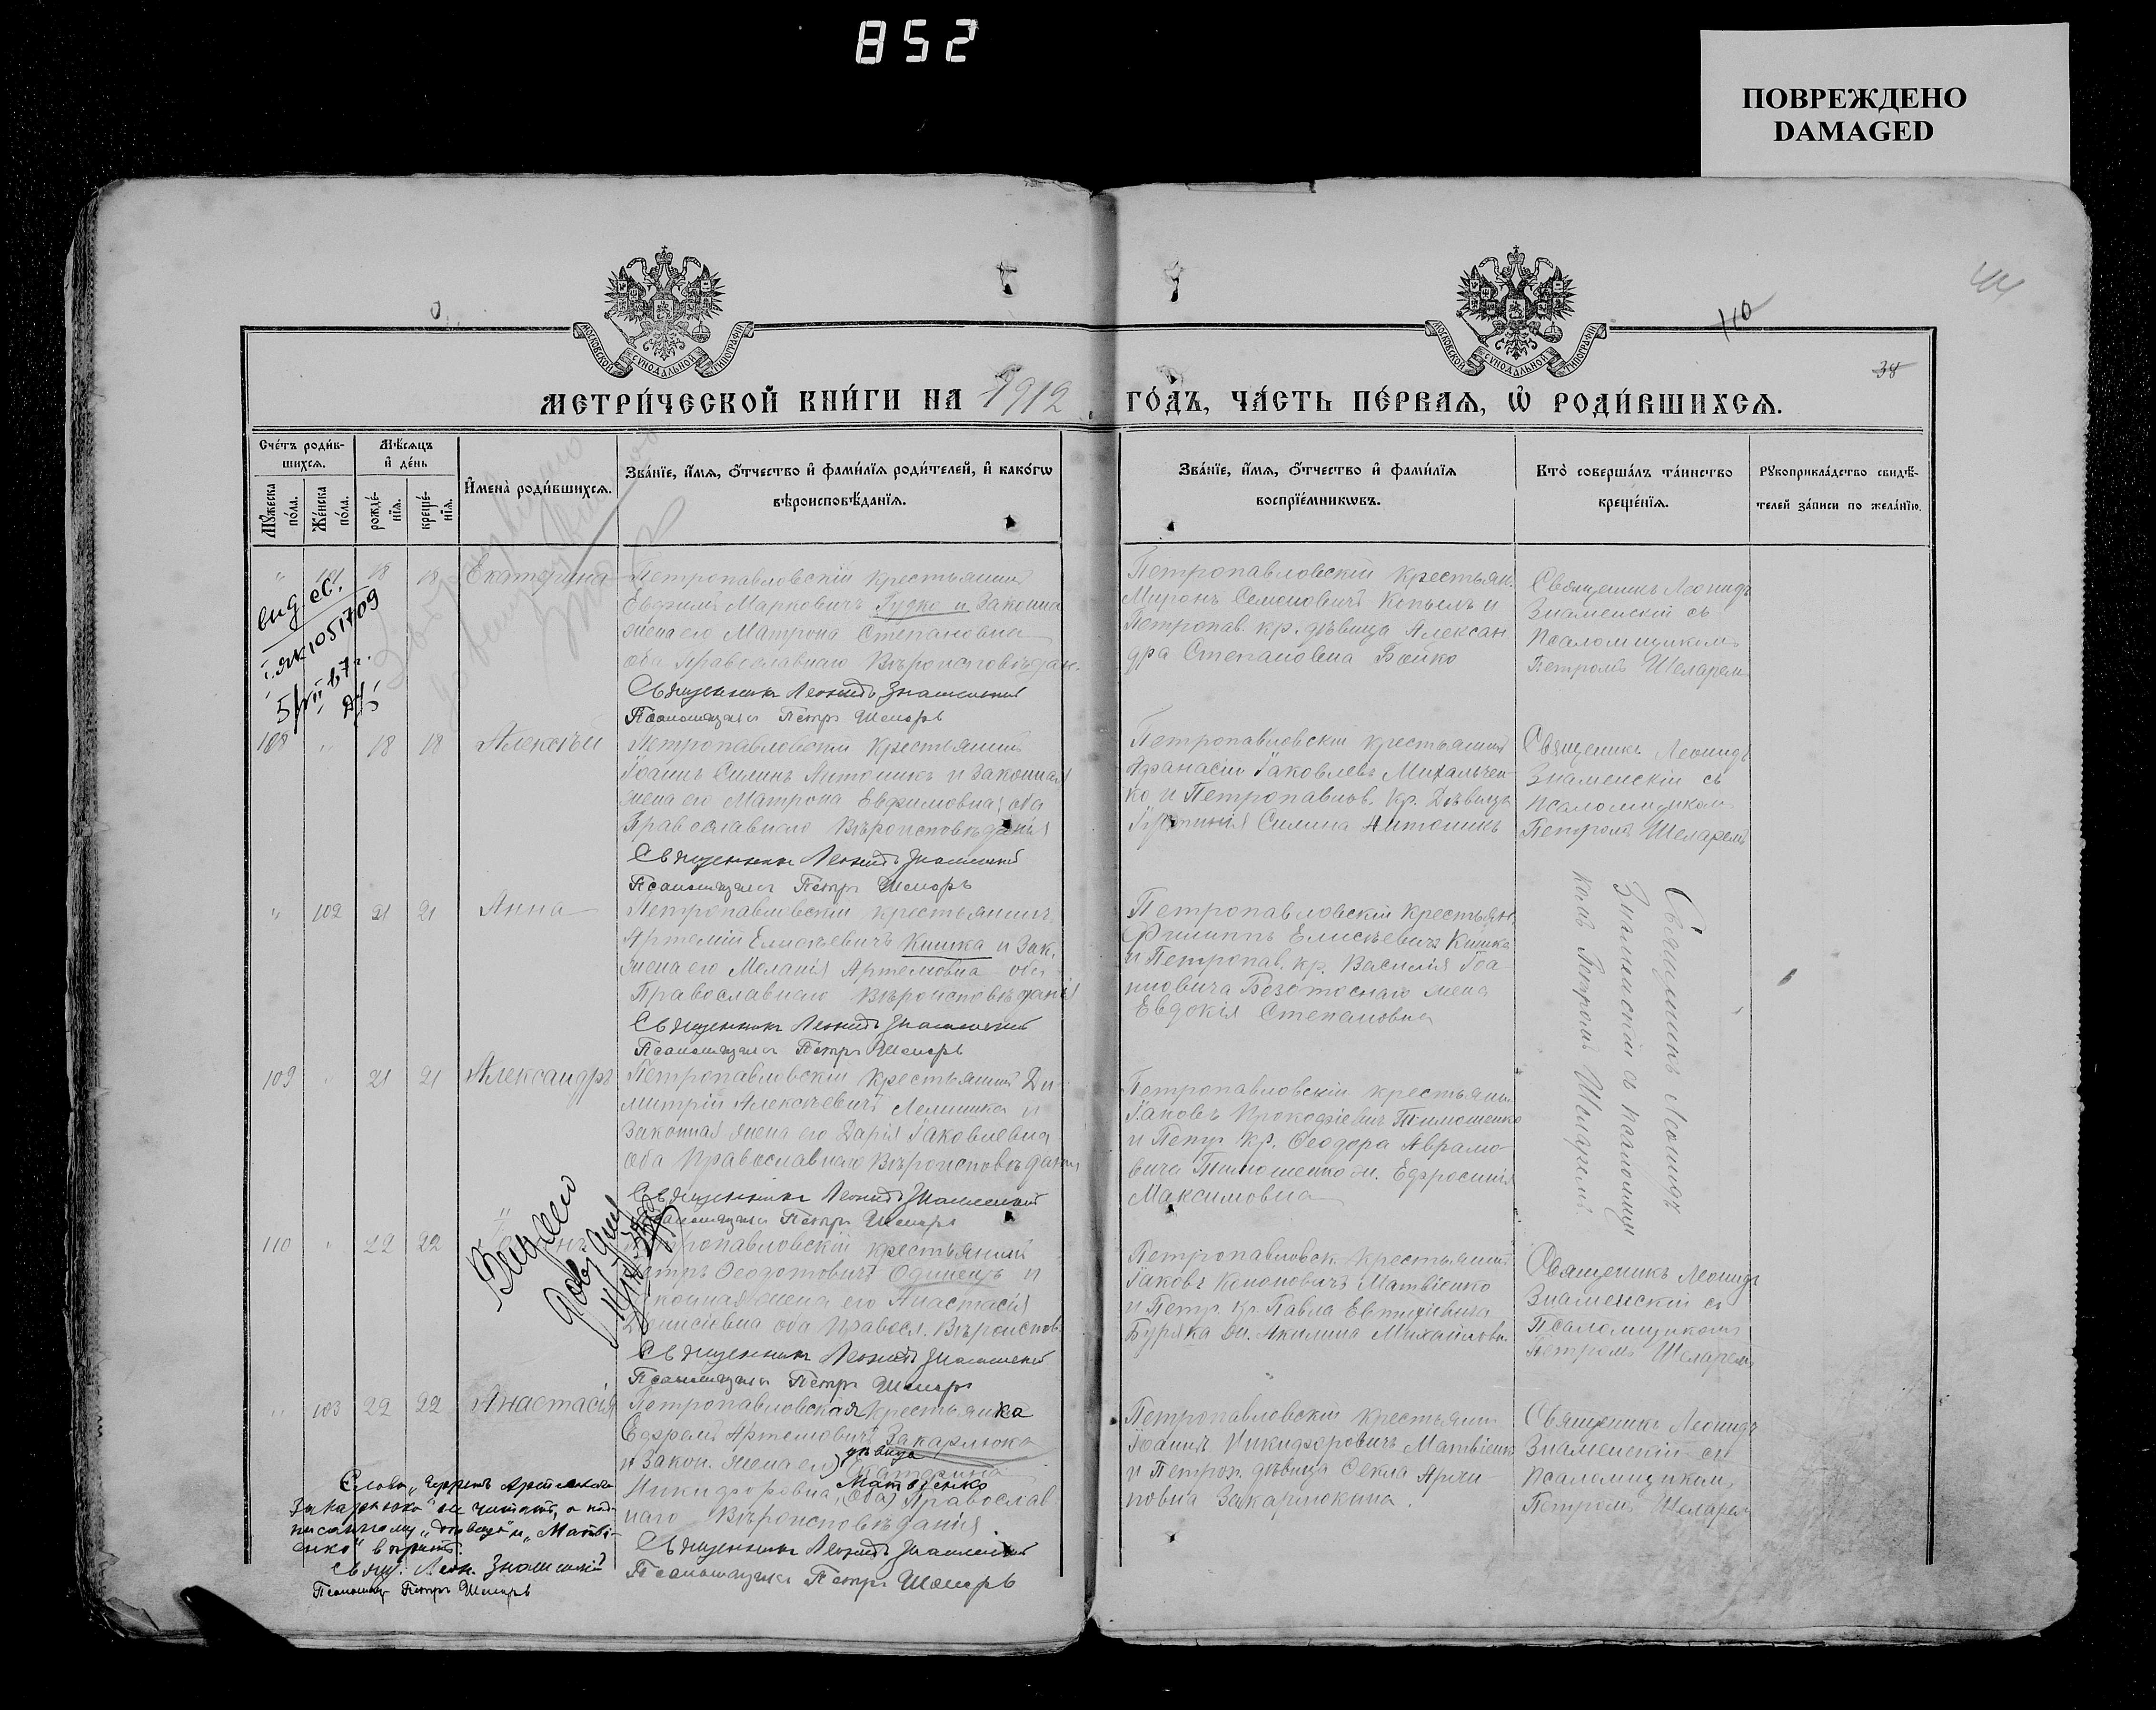 852
ПОВРЕЖДЕНО
DAMAGED
110
38
МОСКОВСКОЙ СУНОДАЛЬНОЙ ТИПОГРАФІИ
МОСКОВСКОЙ СУНОДАЛЬНОЙ ТИПОГРАФІИ
МЕТРИ́ЧЕСКОЙ КНИ́ГИ НА 1912 ГО́ДЪ, ЧА́СТЬ ПЕ́РВАѦ, Ѡ҆ РОДИ́ВШИХСѦ.
Сче́тъ роди́в-
шихсѧ.
Мꙋ́жеска по́ла.
Же́нска по́ла.
Мѣ́сѧцъ
и҆ де́нь
рожде́-
нїѧ.
креще́-
нїѧ.
И҆мена̀ роди́вшихсѧ.
Зва́нїе, и҆́мѧ, ѻ҆́тчество и҆ фами́лїѧ роди́телей, и҆ како́гѡ
вѣроисповѣ́данїѧ.
Зва́нїе, и҆́мѧ, ѻ҆́тчество и҆ фами́лїѧ
воспрїе́мникѡвъ.
Кто̀ соверша́лъ та́инство
креще́нїѧ.
Рꙋкоприкла́дство свидѣ́-
телей за́писи по жела́нїю.
" 101 18 18 Екатерина
Петропавловскій крестьянинъ
Евфимъ Марковичъ Гудко и законная
жена его Матрона Степановна
оба Православнаго Вѣроисповѣдан.
Священникъ Леонидъ Знаменскій
Псаломщикъ Петръ Шеларь
Петропавловскій крестьян.
Миронъ Семеновичъ Копылъ и
Петропав. кр. дѣвица Алексан
дра Степановна Бойко
Священникъ Леонидъ
Знаменскій съ
Псаломщикомъ
Петромъ Шеларемъ
108 " 18 18 Алексѣй
Петропавловскій крестьянинъ
Іоаннъ Силинъ Антоникъ и законная
жена его Матрона Евфимовна, оба
Православнаго Вѣроисповѣданія
Священникъ Леонидъ Знаменскій
Псаломщикъ Петръ Шеларь
Петропавловскій крестьянинъ
Афанасій Іаковлевъ Михальчен-
ко и Петропавлов. кр. Дѣвица
Силина Антоникъ
Священникъ Леонидъ
Знаменскій съ
Псаломщикомъ
Петромъ Шеларемъ
" 102 21 21 Анна
Петропавловскій крестьянинъ
Артемій Елисѣевичъ Кишка и Зак.
жена его Меланія Артемовна оба
Православнаго Вѣроисповѣданія
Священникъ Леонидъ Знаменскій
Псаломщикъ Петръ Шеларь
Петропавловскій крестьян.
Филиппъ Елисѣевичъ Кишка
и Петропав. кр. Василія Іоа
нновича Безотоснаго жена
Евдокія Степановна
Священникъ Леонидъ
Знаменскій съ псаломщи
комъ Петромъ Шеларемъ
109 " 21 21 Александръ
Петропавловскій крестьянинъ Ди
митрій Алексѣевичъ Лемишка и
законная жена его Дарія Іаковлевна
оба Православнаго Вѣроисповѣданія
Священникъ Леонидъ Знаменскій
Псаломщикъ Петръ Шеларь
Петропавловскій крестьянин
Іаковъ Прокофіевичъ Тимошенко
и Петр. кр. Ѳеодора Аврамо-
вича Тимошенко ж. Ефросинія
Максимовна
110 " 22 22
Петропавловскій крестьянинъ
Петръ Ѳеодотовичъ Одинецъ и
законная жена его Анастасія
Денисіевна оба Правосл. Вѣроиспов.
Священникъ Леонидъ Знаменскій
Псаломщикъ Петръ Шеларь
Петропавловск. крестьянинъ
Іаковъ Кононовичъ Матвіенко
и Петр. кр. Павла Евтихіевича
Буряка ж. Акилина Михайловн.
Священникъ Леонидъ
Знаменскій съ
Псаломщикомъ
Петромъ Шеларемъ
" 103 22 22 Анастасія
Петропавловская крестьянка
Ефремъ Артемовичъ Закарлюка
и Закон. жена его) дѣвица Екатерина
Никифоровна Матвіенко (оба) Православ
наго Вѣроисповѣданія.
Священникъ Леонидъ Знаменскій
Псаломщикъ Петръ Шеларь
Петропавловскій крестьянин
Іоаннъ Никифоровичъ Матвіенк
и Петроп. дѣвица Ѳекла Архи-
повна Закарлюкина.
Священникъ Леонидъ
Знаменскій съ
Псаломщикомъ
Петромъ Шеларем
Слова „Ефремъ Артемов.
Закарлюка" не читать, а над-
писанному „дѣвица" и „Матві-
енко" вѣрить.
Свящ. Леон. Знаменскій
Псаломщ. Петръ Шеларь